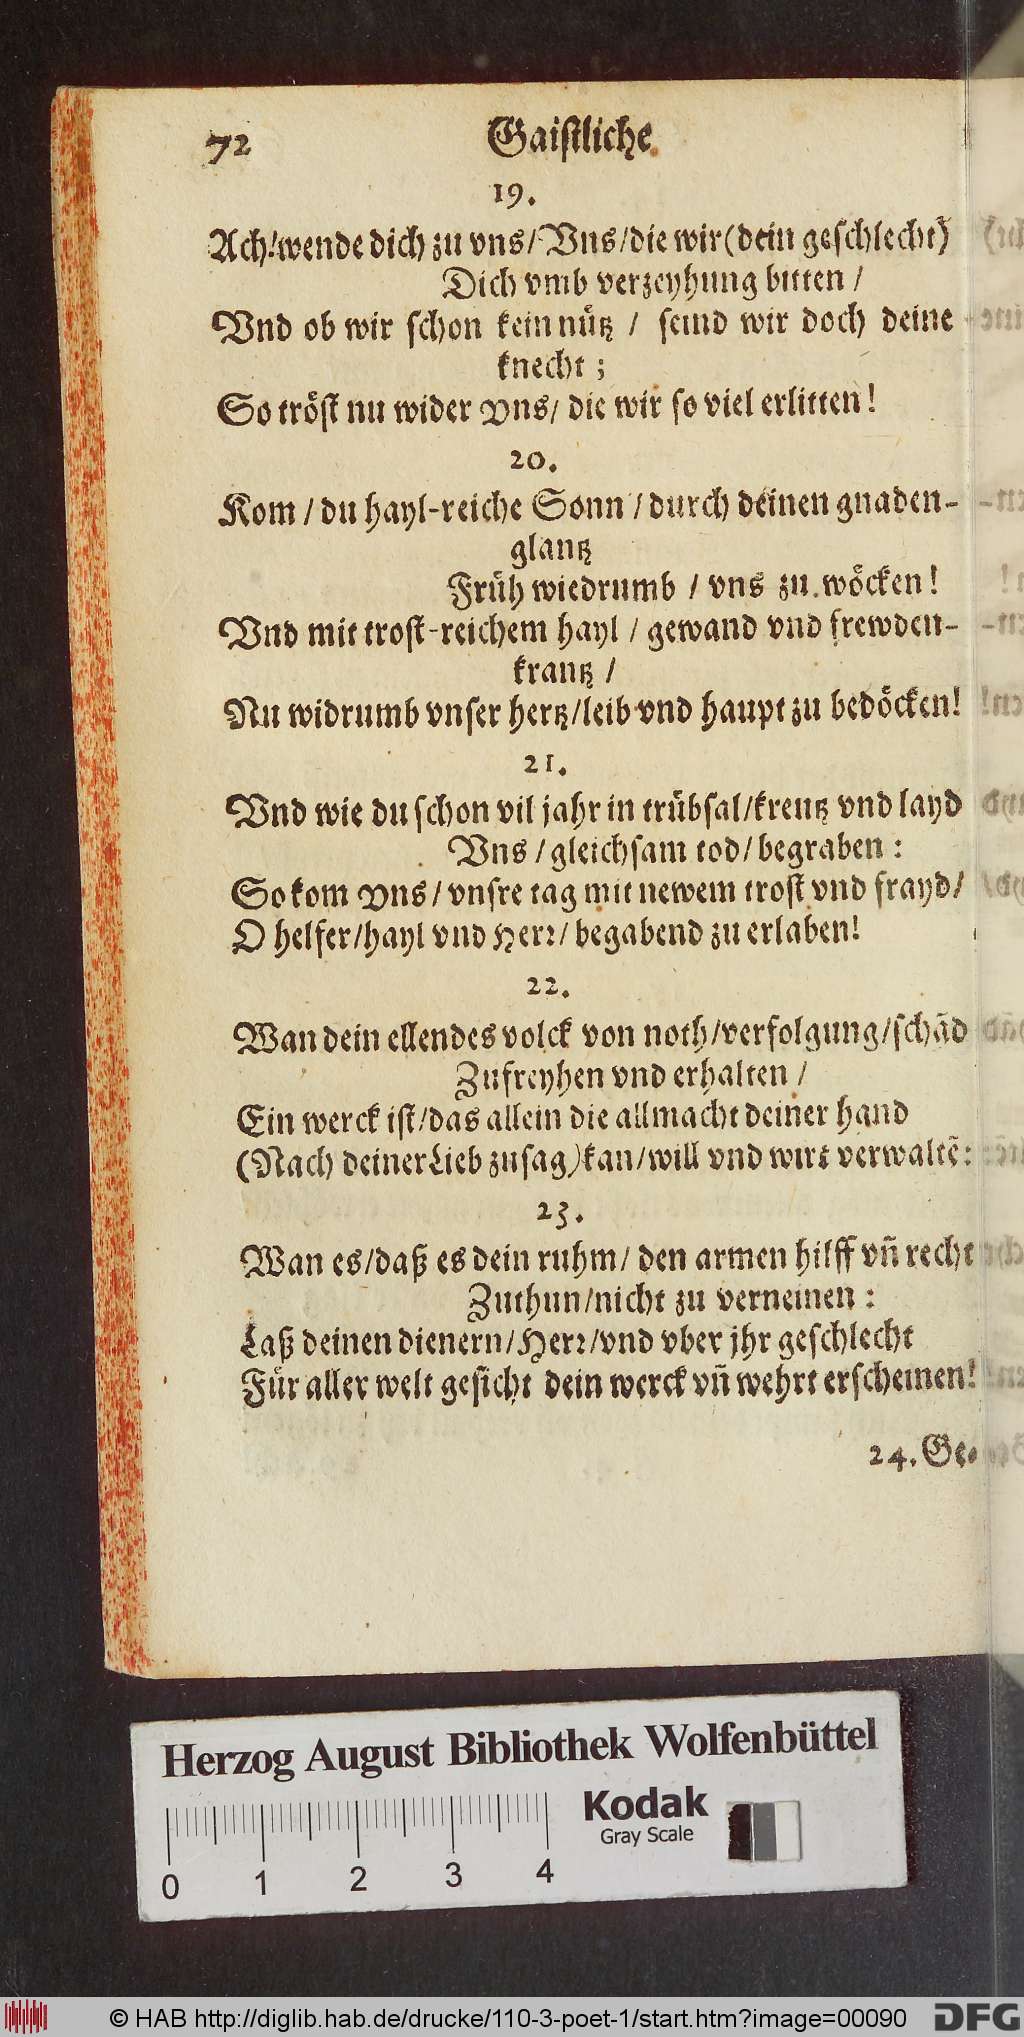 72 Gaistliche
19.
Ach! wende dich zu vns/ Vns/ die wir (dein geschlecht)
Dich vmb verzeyhung bitten /
Vnd ob wir schon kein nütz / seind wir doch deine
knecht ;
So tröst nu wider vns/ die wir so viel erlitten!
20.
Kom / du hayl-reiche Sonn / durch deinen gnaden-
glantz
Früh wiedrumb / vns zu wöcken!
Vnd mit trost-reichem hayl / gewand vnd frewden-
krantz /
Nu widrumb vnser hertz/ leib vnd haupt zu bedöcken!
21.
Vnd wie du schon vil jahr in trübsal/ kreutz vnd layd
Vns / gleichsam tod/ begraben :
So kom vns/ vnsre tag mit newem trost vnd frayd/
O helfer/ hayl vnd Herr/ begabend zu erlaben!
22.
Wan dein ellendes volck von noth/ verfolgung/ schãd
Zufreyhen vnd erhalten /
Ein werck ist/ das allein die allmacht deiner hand
(Nach deiner Lieb zusag) kan/ will vnd wirt verwaltẽ:
23.
Wan es/ daß es dein ruhm/ den armen hilff vñ recht
Zuthun/ nicht zu verneinen :
Laß deinen dienern/ Herr/ vnd vber jhr geschlecht
Für aller welt gesicht dein werck vñ wehrt erscheinen!
24. Ge-
Herzog August Bibliothek Wolfenbüttel
Kodak
Gray Scale
0 1 2 3 4
© HAB http://diglib.hab.de/drucke/110-3-poet-1/start.htm?image=00090 DFG